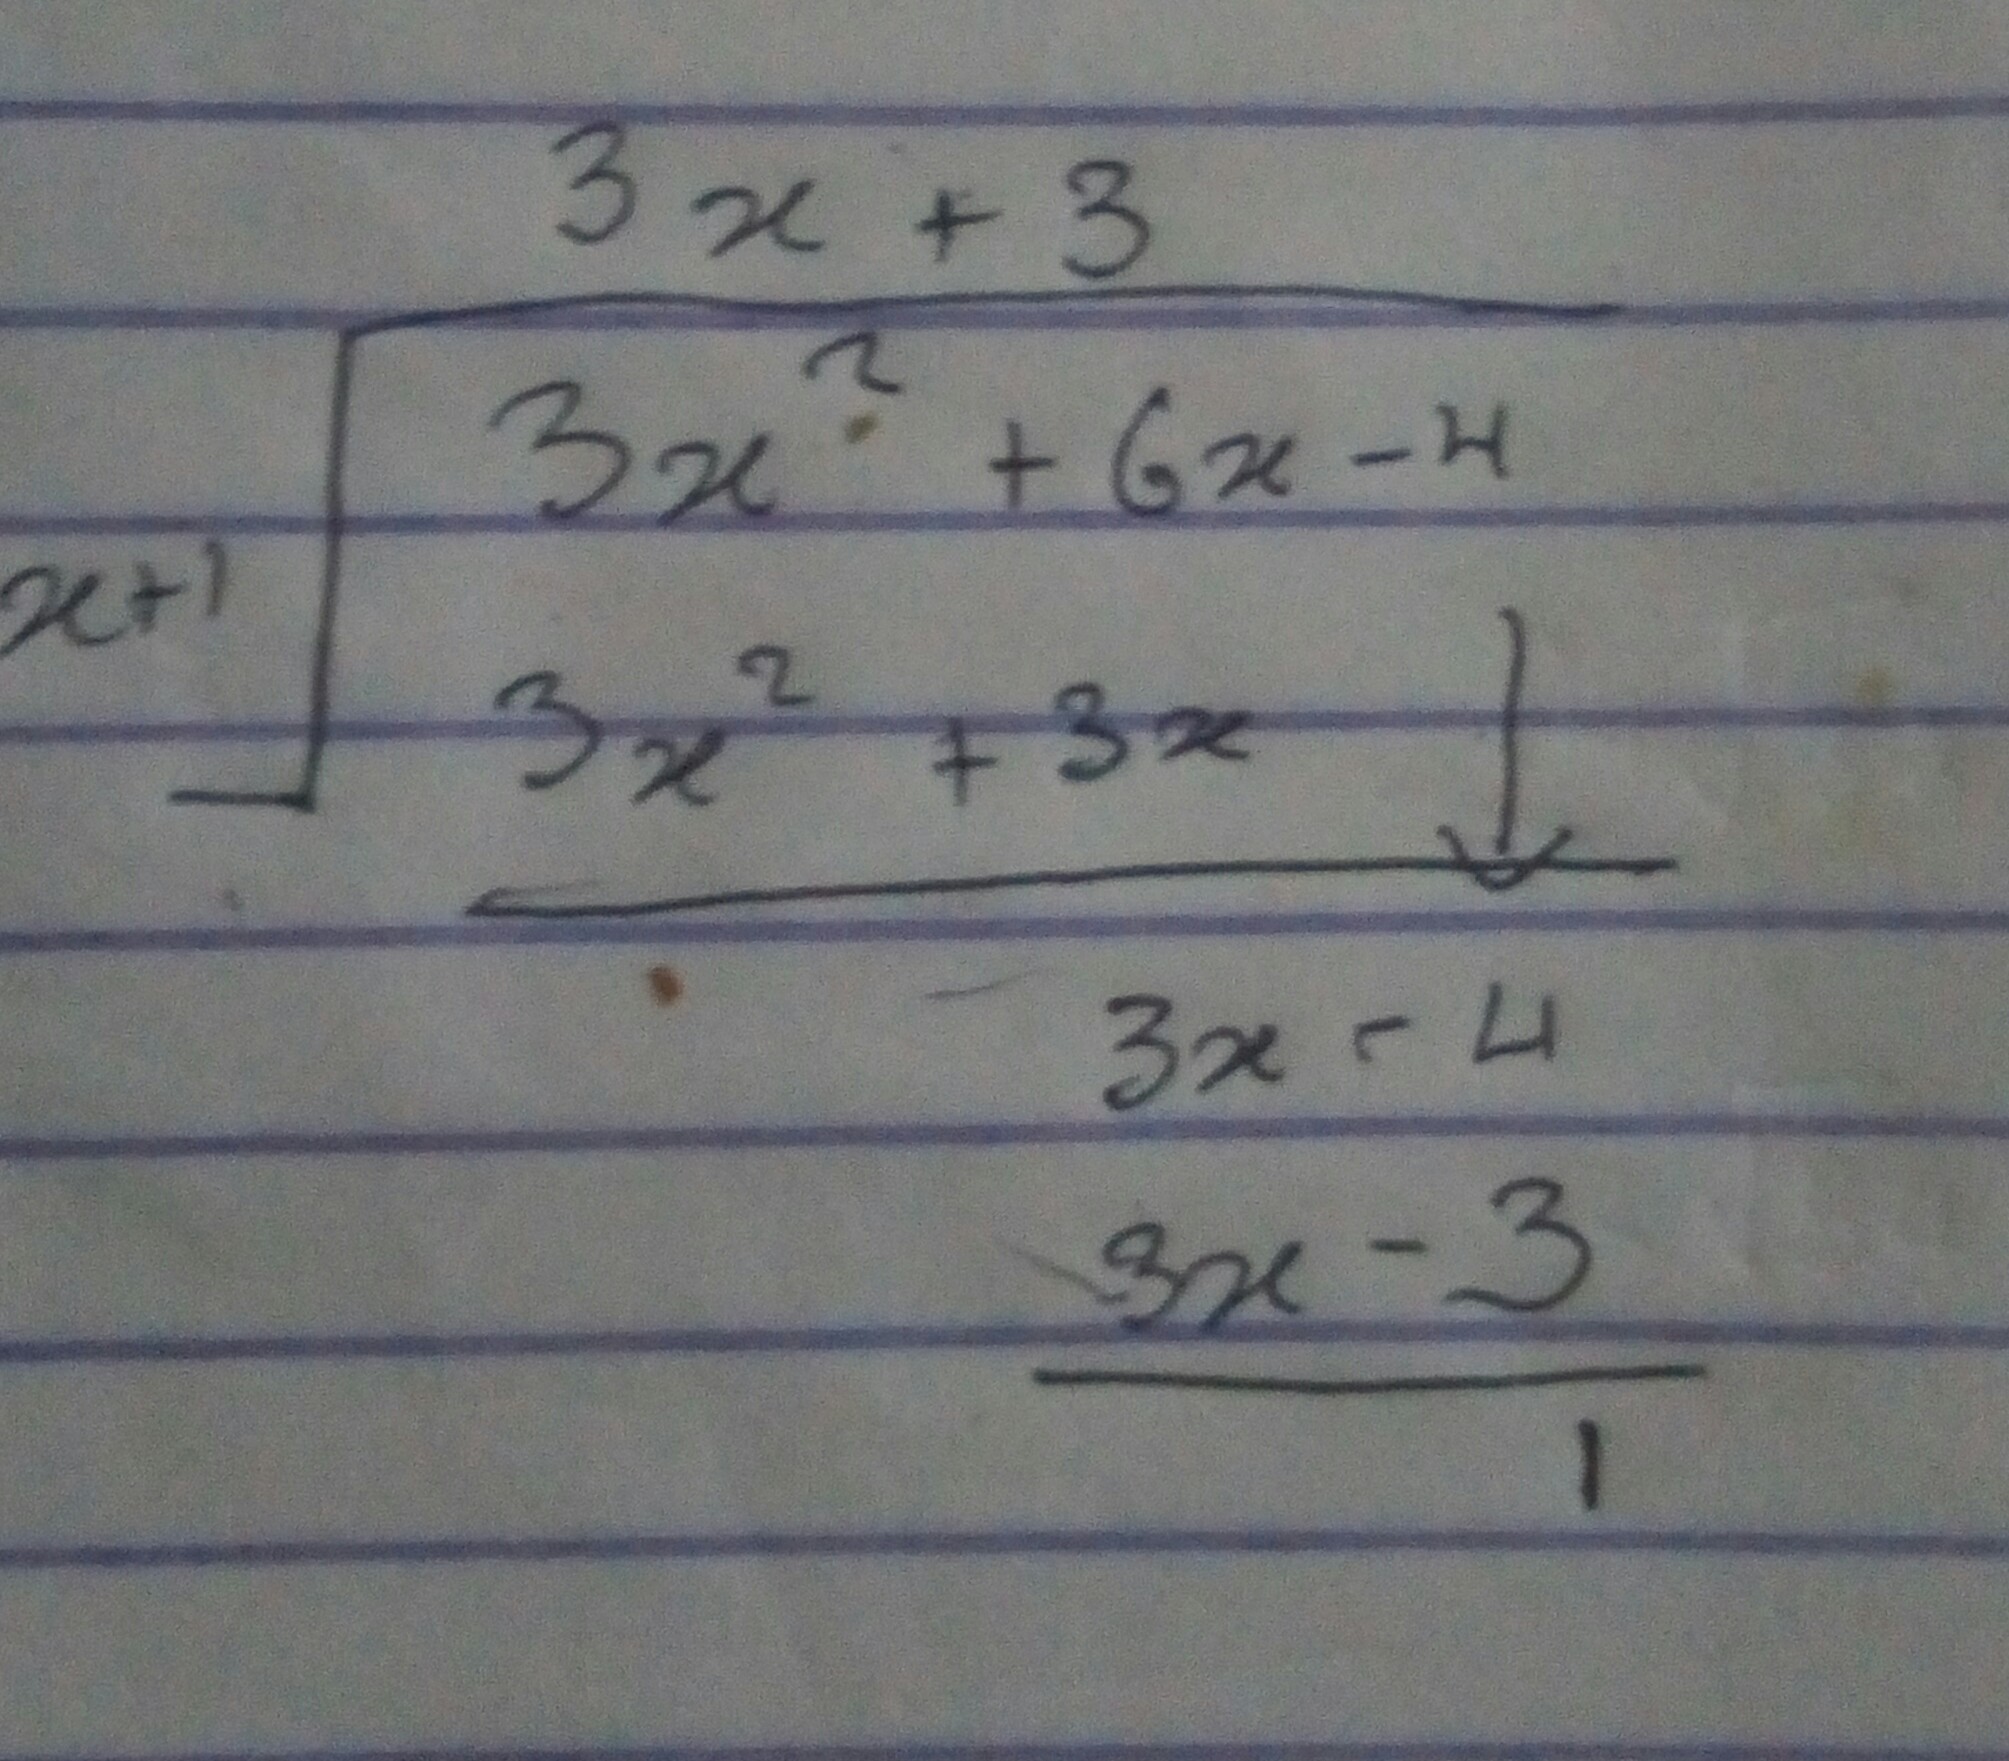 3x + 3
3x² + 6x - 4
x+1
3x² + 3x
3x - 4
3x - 3
1